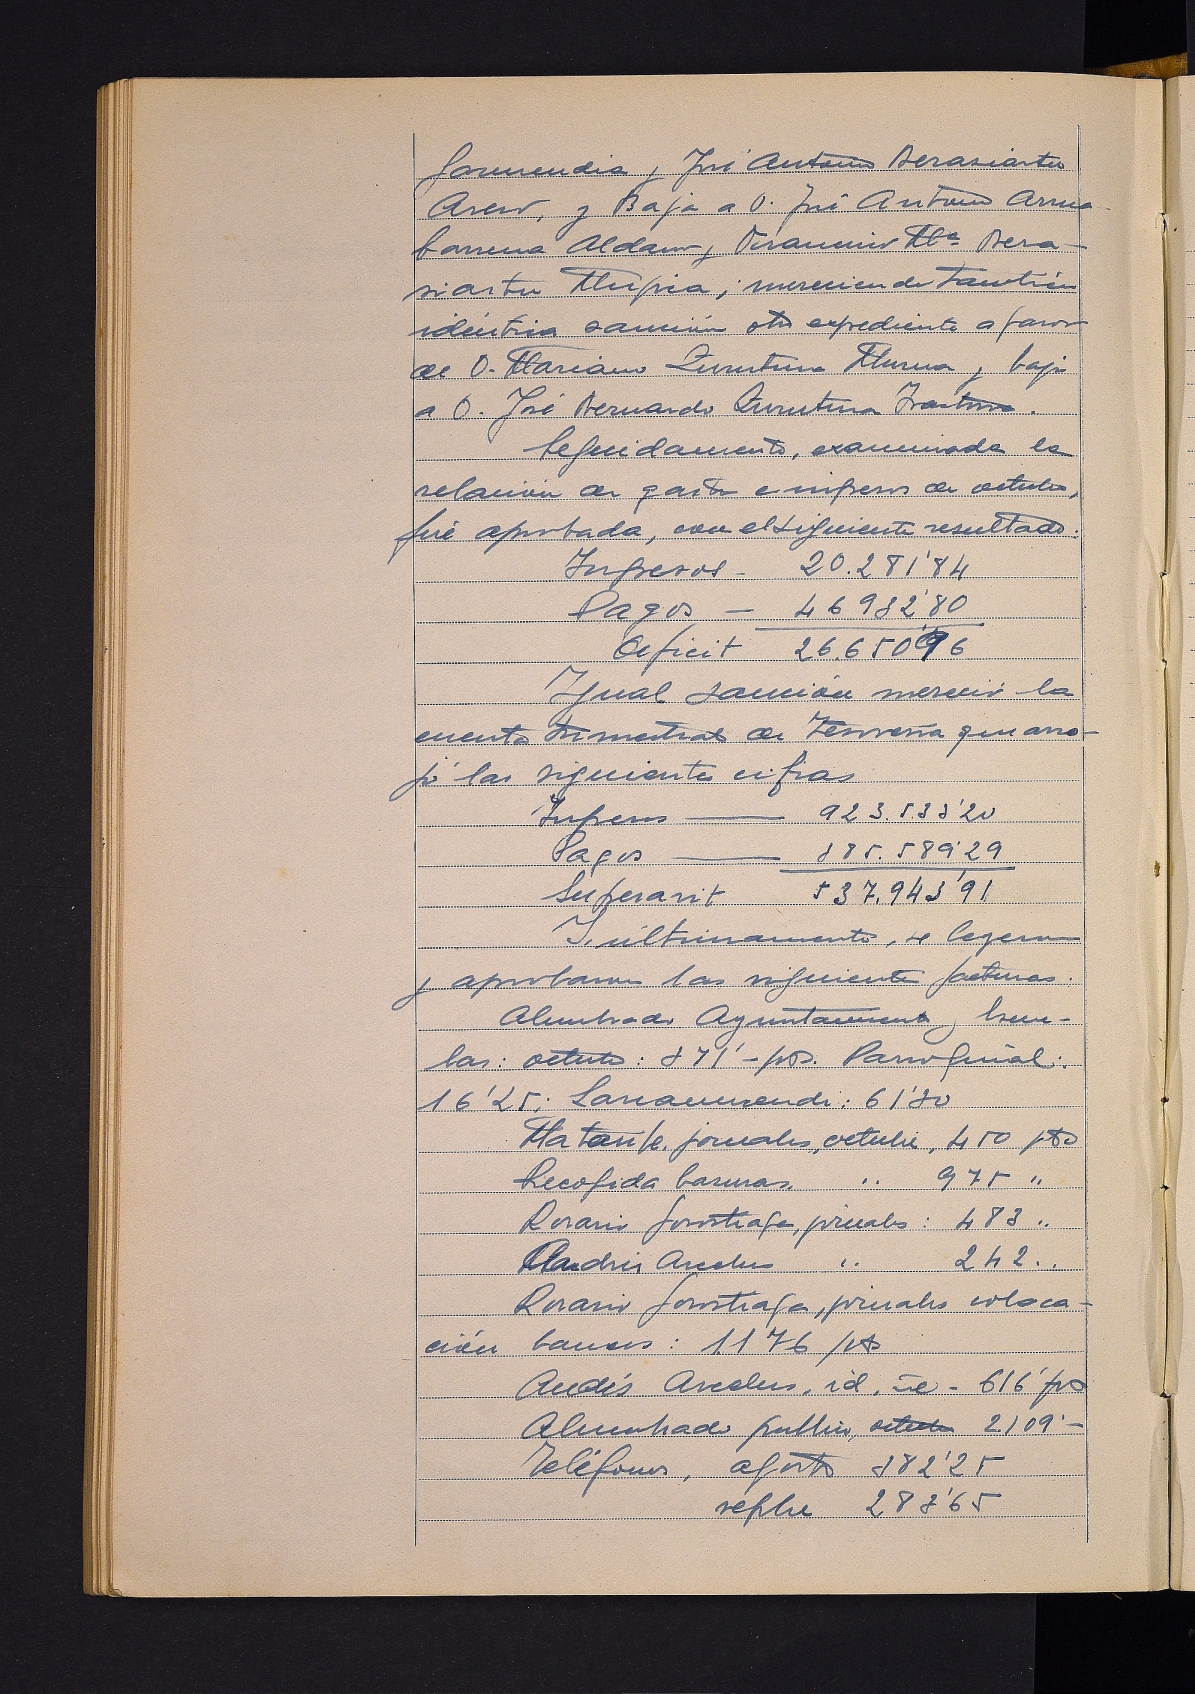 Garmendia y José Antonio Berasiartu
Arew, y Baja a D. José Antonio Arru-
barrena Aldanv y Venancio Mª Bera-
siartu Mugica; mereciendo también
idéntica sanción otro expediente a favor
de D. Mariano Zurutuza Munua y baja
a D. José Bernardo Zurutuza
Seguidamente, examinada la
relación de gastos e ingresos de octubre,
fué aprobada, con el siguiente resultado:
Ingresos - 20.281'84
Pagos — 46932'80
Deficit 26.650'96
Igual sanción mereció la
cuenta trimestral de Tesorería que arro-
jó las siguientes cifras
Ingresos —— 923.533'20
Pagos —— 385.589'29
Superavit 537.943'91
Y, últimamente, se leyeron
y aprobaron las siguientes facturas:
Alumbrado Ayuntamiento y Escue-
las: octubre: 371'- pts. Parroquial:
16'25; Larramendi: 61'30
jornales, octubre, 450 pts
Recogida basuras. " 975 "
Rosario Gorostiaga, jornales: 483 "
Andrés Arcelus " 242 "
Rosario Gorostiaga, jornales coloca-
ción bancos: 1176 pts
Andrés Arcelus, id. - 616' pts
Alumbrado publico, octubre 2109'-
Teléfonos, agosto 382'25
sepbre 283'65